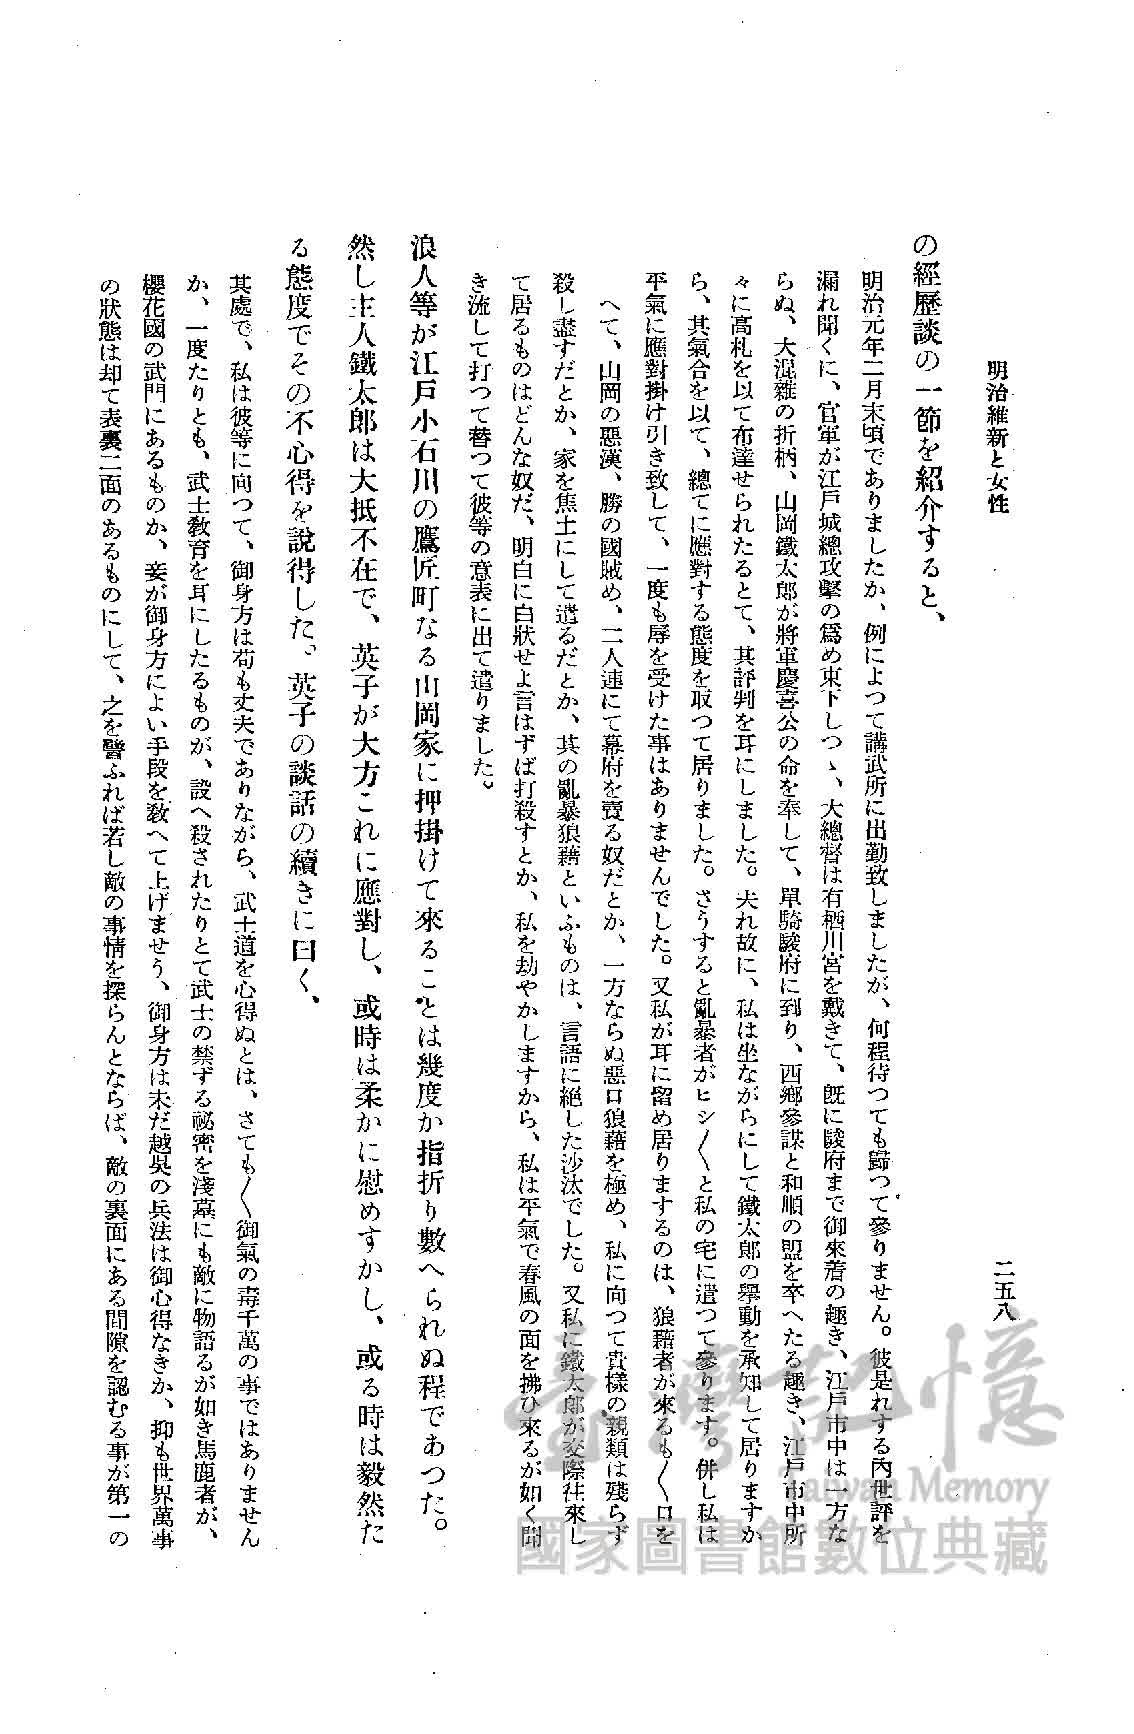 明治維新と女性
二五八
の經歷談の一節を紹介すると、
明治元年二月末頃でありましたか、例によつて講武所に出勤致しましたが、何程待つても歸つて參りません。彼是れする內世評を
漏れ聞くに、官軍が江戸城總攻擊の爲め東下しつゝ、大總督は有栖川宮を戴きて、既に駿府まで御來着の趣き、江戸市中は一方な
らぬ、大混雜の折柄、山岡鐵太郎が將軍慶喜公の命を奉して、單騎駿府に到り、西鄕參謀と和順の盟を卒へたる趣き、江戸市中所
々に高札を以て布達せられたるとて、其評判を耳にしました。夫れ故に、私は坐ながらにして鐵太郎の擧動を承知して居りますか
ら、其氣合を以て、總てに應對する態度を取つて居りました。さうすると亂暴者がヒシ〱と私の宅に遣つて參ります。併し私は
平氣に應對掛け引き致して、一度も辱を受けた事はありませんでした。又私が耳に留め居りまするのは、狼藉者が來るも〱口を
へて、山岡の惡漢、勝の國賊め、二人連にて幕府を賣る奴だとか、一方ならぬ惡口狼藉を極め、私に向つて貴樣の親類は殘らず
殺し盡すだとか、家を焦土にして遣るだとか、其の亂暴狼藉といふものは、言語に絕した沙汰でした。又私に鐵太郎が交際往來し
て居るものはどんな奴だ、明白に白狀せよ言はずば打殺すとか、私を劫やかしますから、私は平氣で春風の面を拂ひ來るが如く聞
き流して打つて替つて彼等の意表に出て遣りました。
浪人等が江戸小石川の鷹匠町なる山岡家に押掛けて來ることは幾度か指折り數へられぬ程であつた。
然し主人鐵太郎は大抵不在で、英子が大方これに應對し、或時は柔かに慰めすかし、或る時は毅然た
る態度でその不心得を說得した。英子の談話の續きに曰く、
其處で、私は彼等に向つて、御身方は苟も丈夫でありながら、武士道を心得ぬとは、さても〱御氣の毒千萬の事ではありません
か、一度たりとも、武士敎育を耳にしたるものが、設へ殺されたりとて武士の禁ずる祕密を淺墓にも敵に物語るが如き馬鹿者が、
櫻花國の武門にあるものか、妾が御身方によい手段を敎へて上げませう、御身方は未だ越吳の兵法は御心得なきか、抑も世界萬事
の狀態は却て表裏二面のあるものにして、之を譬ふれば若し敵の事情を探らんとならば、敵の裏面にある間隙を認むる事が第一の
臺灣記憶
Taiwan Memory
國家圖書館數位典藏